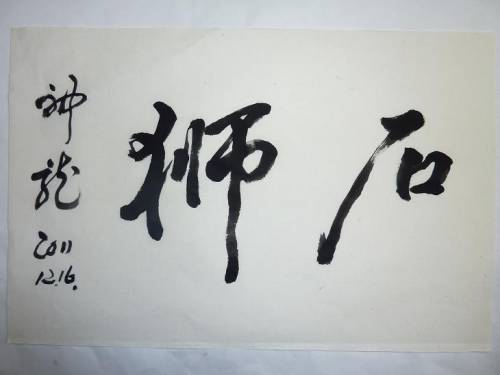 石狮
神龍
2011
12.16.